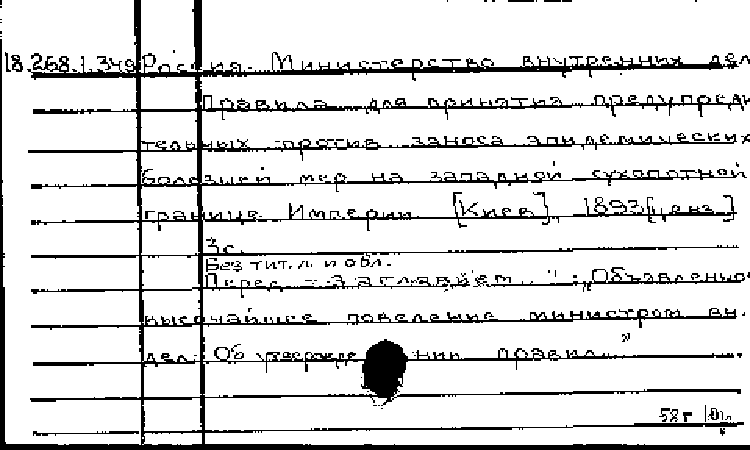 18.268.1.349 Россия. Министерство внутренних дел
Правила для принятия предупреди
тельных против заноса эпидемических
болезней мер на западной сухопотной
границе Империи. [Киев], 1893 [ценз.]
3с.
Без тит. л. и обл.
Перед заглавием: „Объявленное
высочайшее повеление министром вн.
дел Об утвержде нии правил"
58г